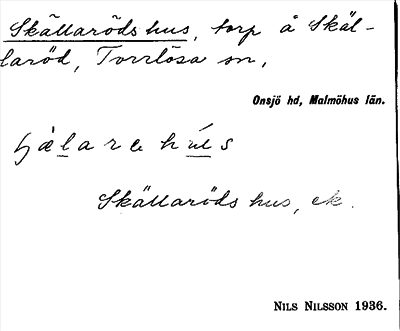 Skällaröds hus, torp å Skäl-
laröd, Torrlösa sn,
Onsjö hd, Malmöhus län.
Skällaröds hus, ek.
NILS NILSSON 1936.